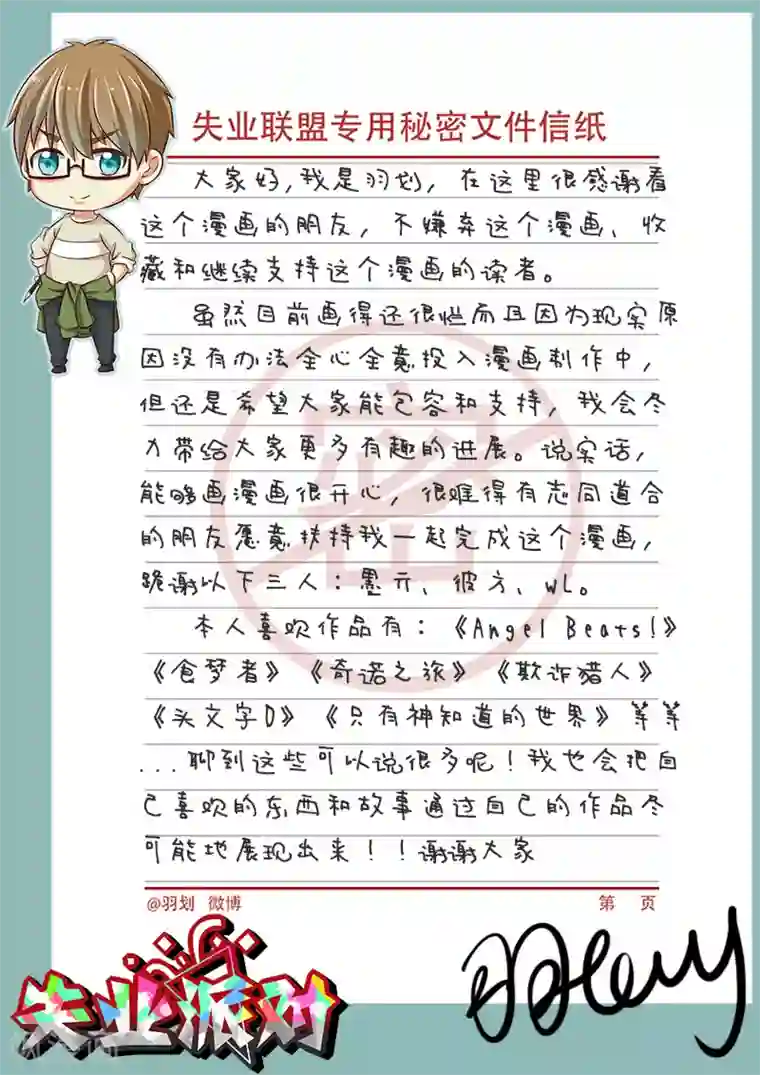 失业联盟专用秘密文件信纸
大家好,我是羽划,在这里很感谢看
这个漫画的朋友,不嫌弃这个漫画、收
藏和继续支持这个漫画的读者。
虽然目前画得还很烂而且因为现实原
因没有办法全心全意投入漫画制作中,
但还是希望大家能包容和支持,我会尽
力带给大家更多有趣的进展。说实话,
能够画漫画很开心,很难得有志同道合
的朋友愿意扶持我一起完成这个漫画,
跪谢以下三人:墨亓、彼方、wL。
本人喜欢作品有:《Angel Beats!》
《食梦者》《奇诺之旅》《欺诈猎人》
《头文字D》《只有神知道的世界》等等
...聊到这些可以说很多呢!我也会把自
己喜欢的东西和故事通过自己的作品尽
可能地展现出来!!谢谢大家
密
@羽划 微博
第 页
失业派对